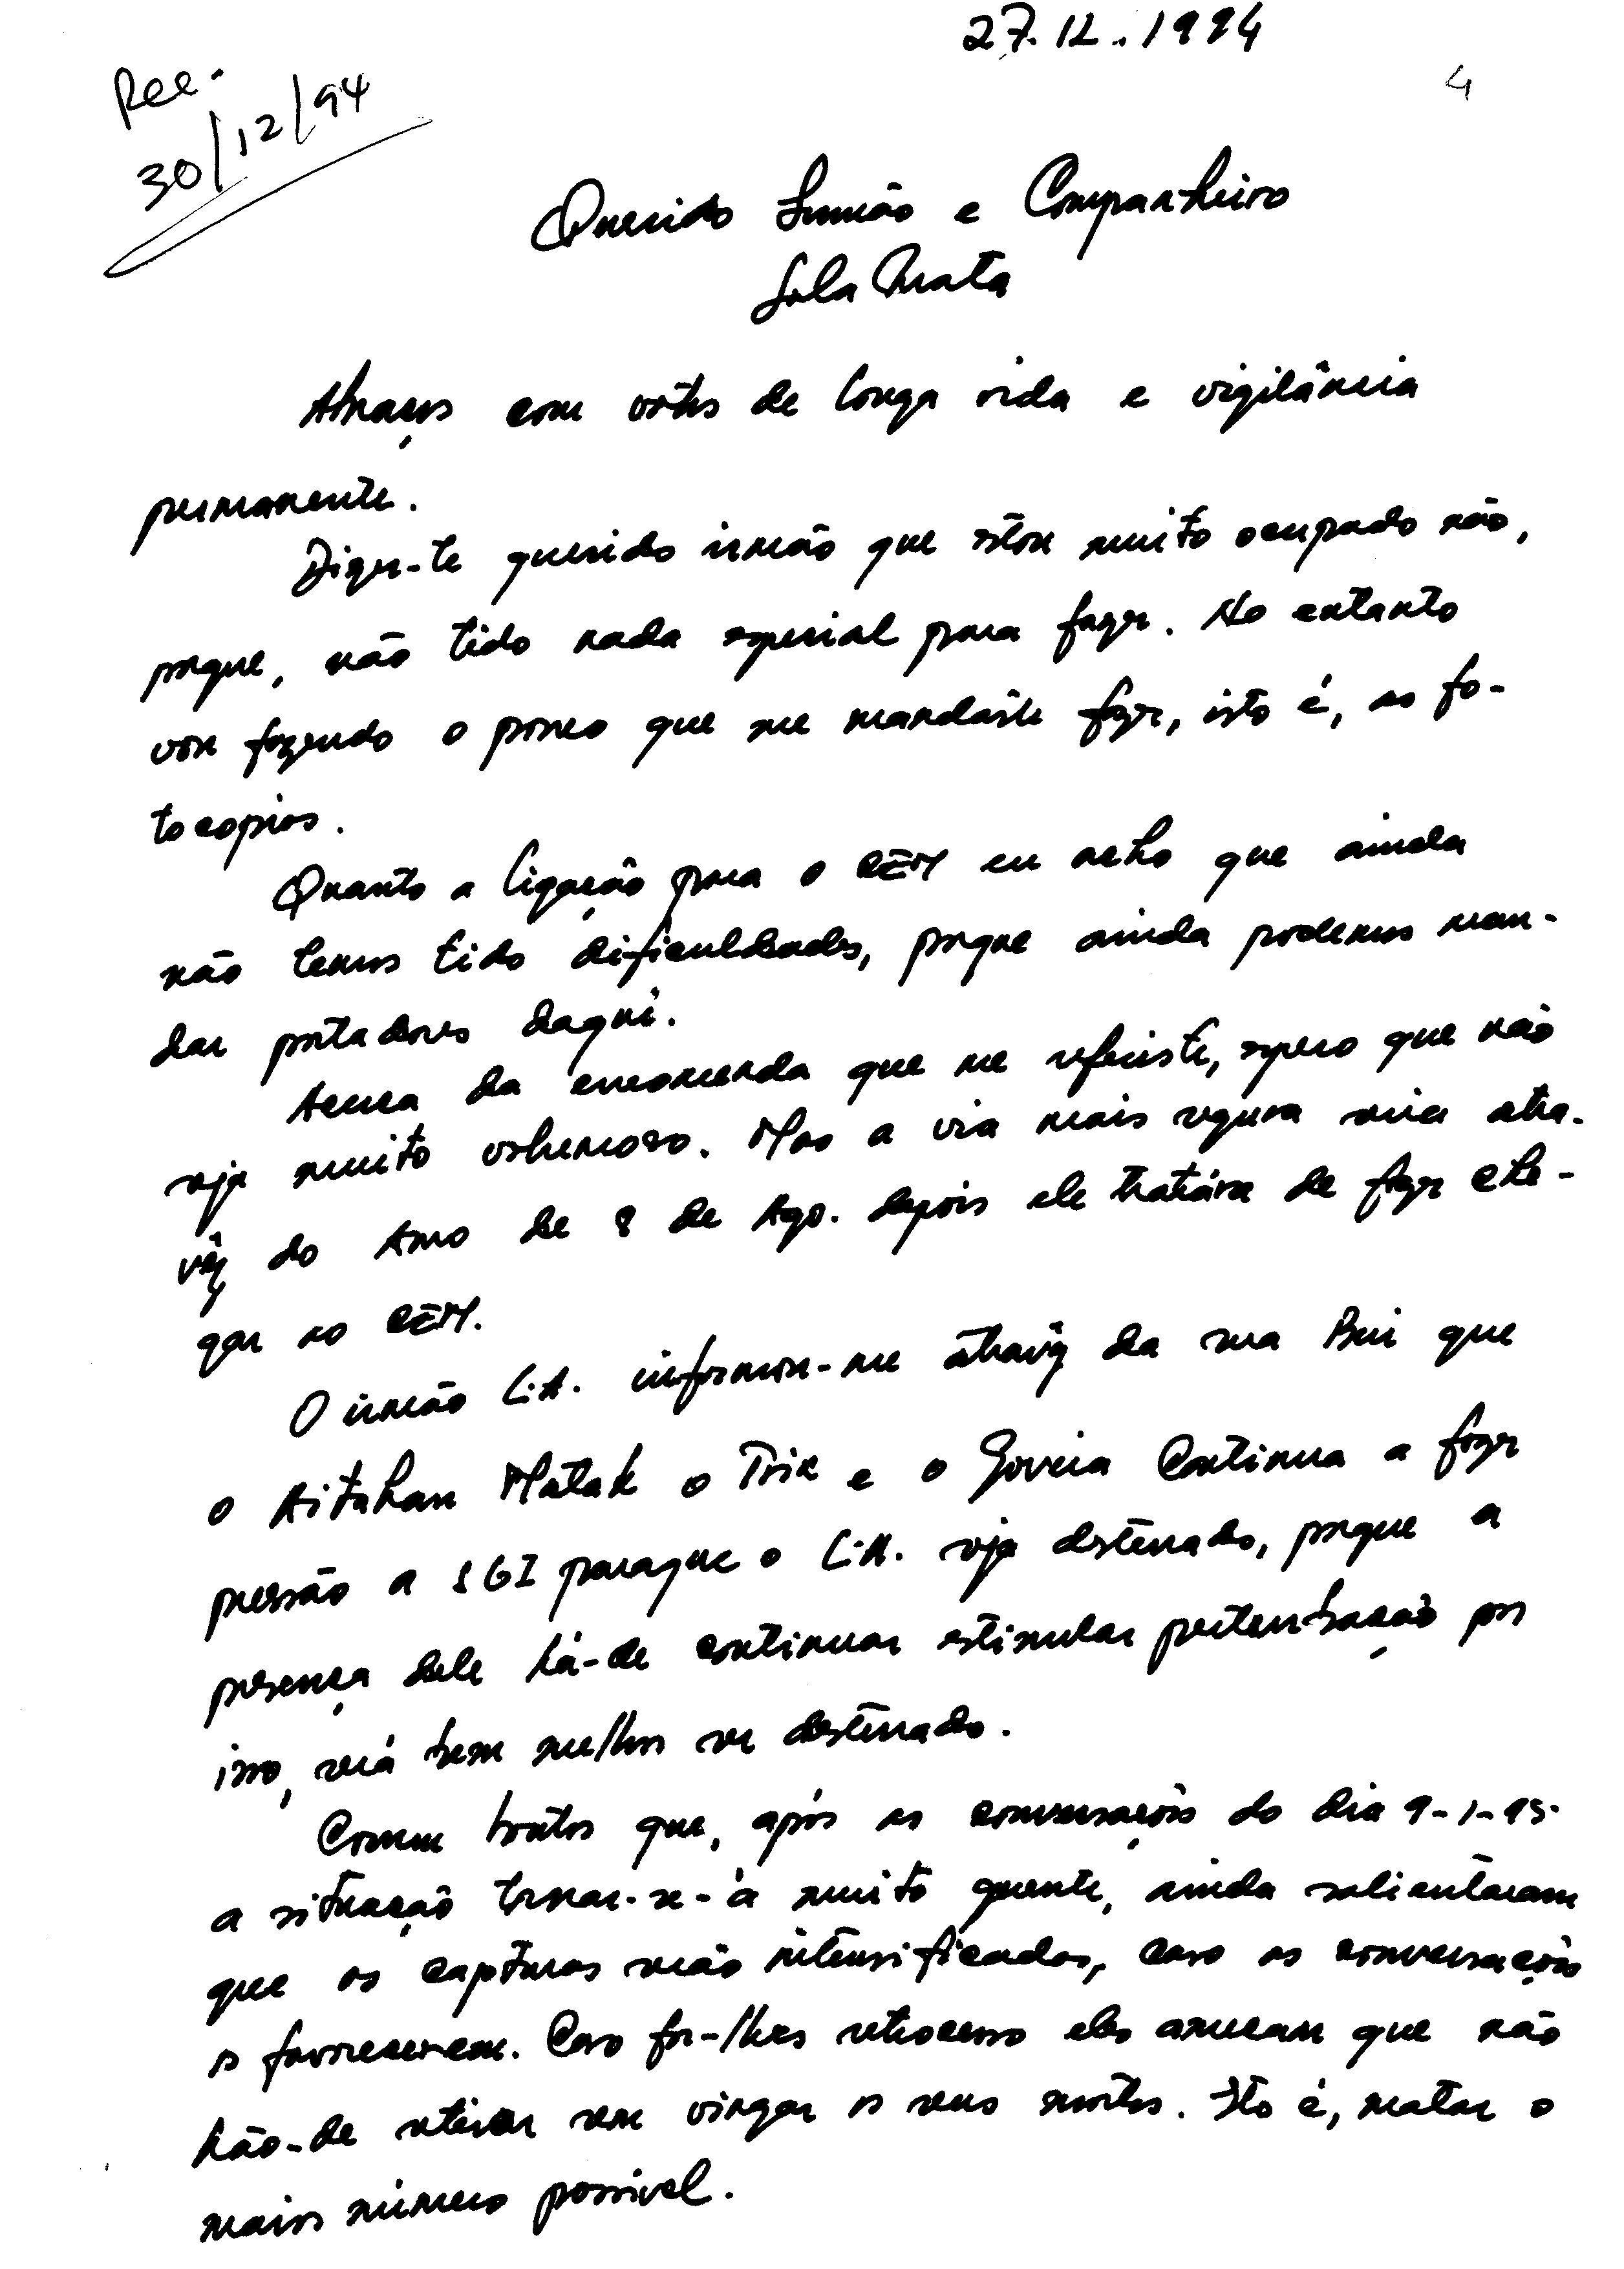 27.12.1994
Rec.
30/12/94
4
Querido Irmão e Companheiro
Lula Mata
Abraços com votos de longa vida e vigilância
permanente.
Digo-te querido irmão que estou muito ocupado não,
porque, não tido nada especial para fazer. No entanto
vou fazendo o pouco que me mandaste fazer, isto é, as fo-
tocopias.
Quanto a ligação para o CEM eu acho que ainda
não temos tido dificuldades, porque ainda podemos man-
dar portadores daqui.
Acerca da encomenda que me referiste, espero que não
seja muito volumoso. Mas a via mais segura seria atra-
vêz do Amo de 8 de Ago. depois ele tratára de fazer che-
gar ao CEM.
O irmão L.A. informou-me atravêz da sua Bui que
o Aitahan Matak o Trix e o Gouveia Continua a fazer
pressão a SGI paraque o L.A. seja desterrado, porque a
presença dele há-de continuar estimular perturbação por
isso, será bem melhor ser desterrado.
Correm boatos que, após as conversações do dia 9-1-95.
a situação tornar-se-á muito quente, ainda salientaram
que as capturas serão intensificadas, caso as conversações
os favorecerem. Caso for-lhes retrocesso eles ameaam que não
hão-de retirar sem vingar os seus mortos. Isto é, matar o
mais número possível.